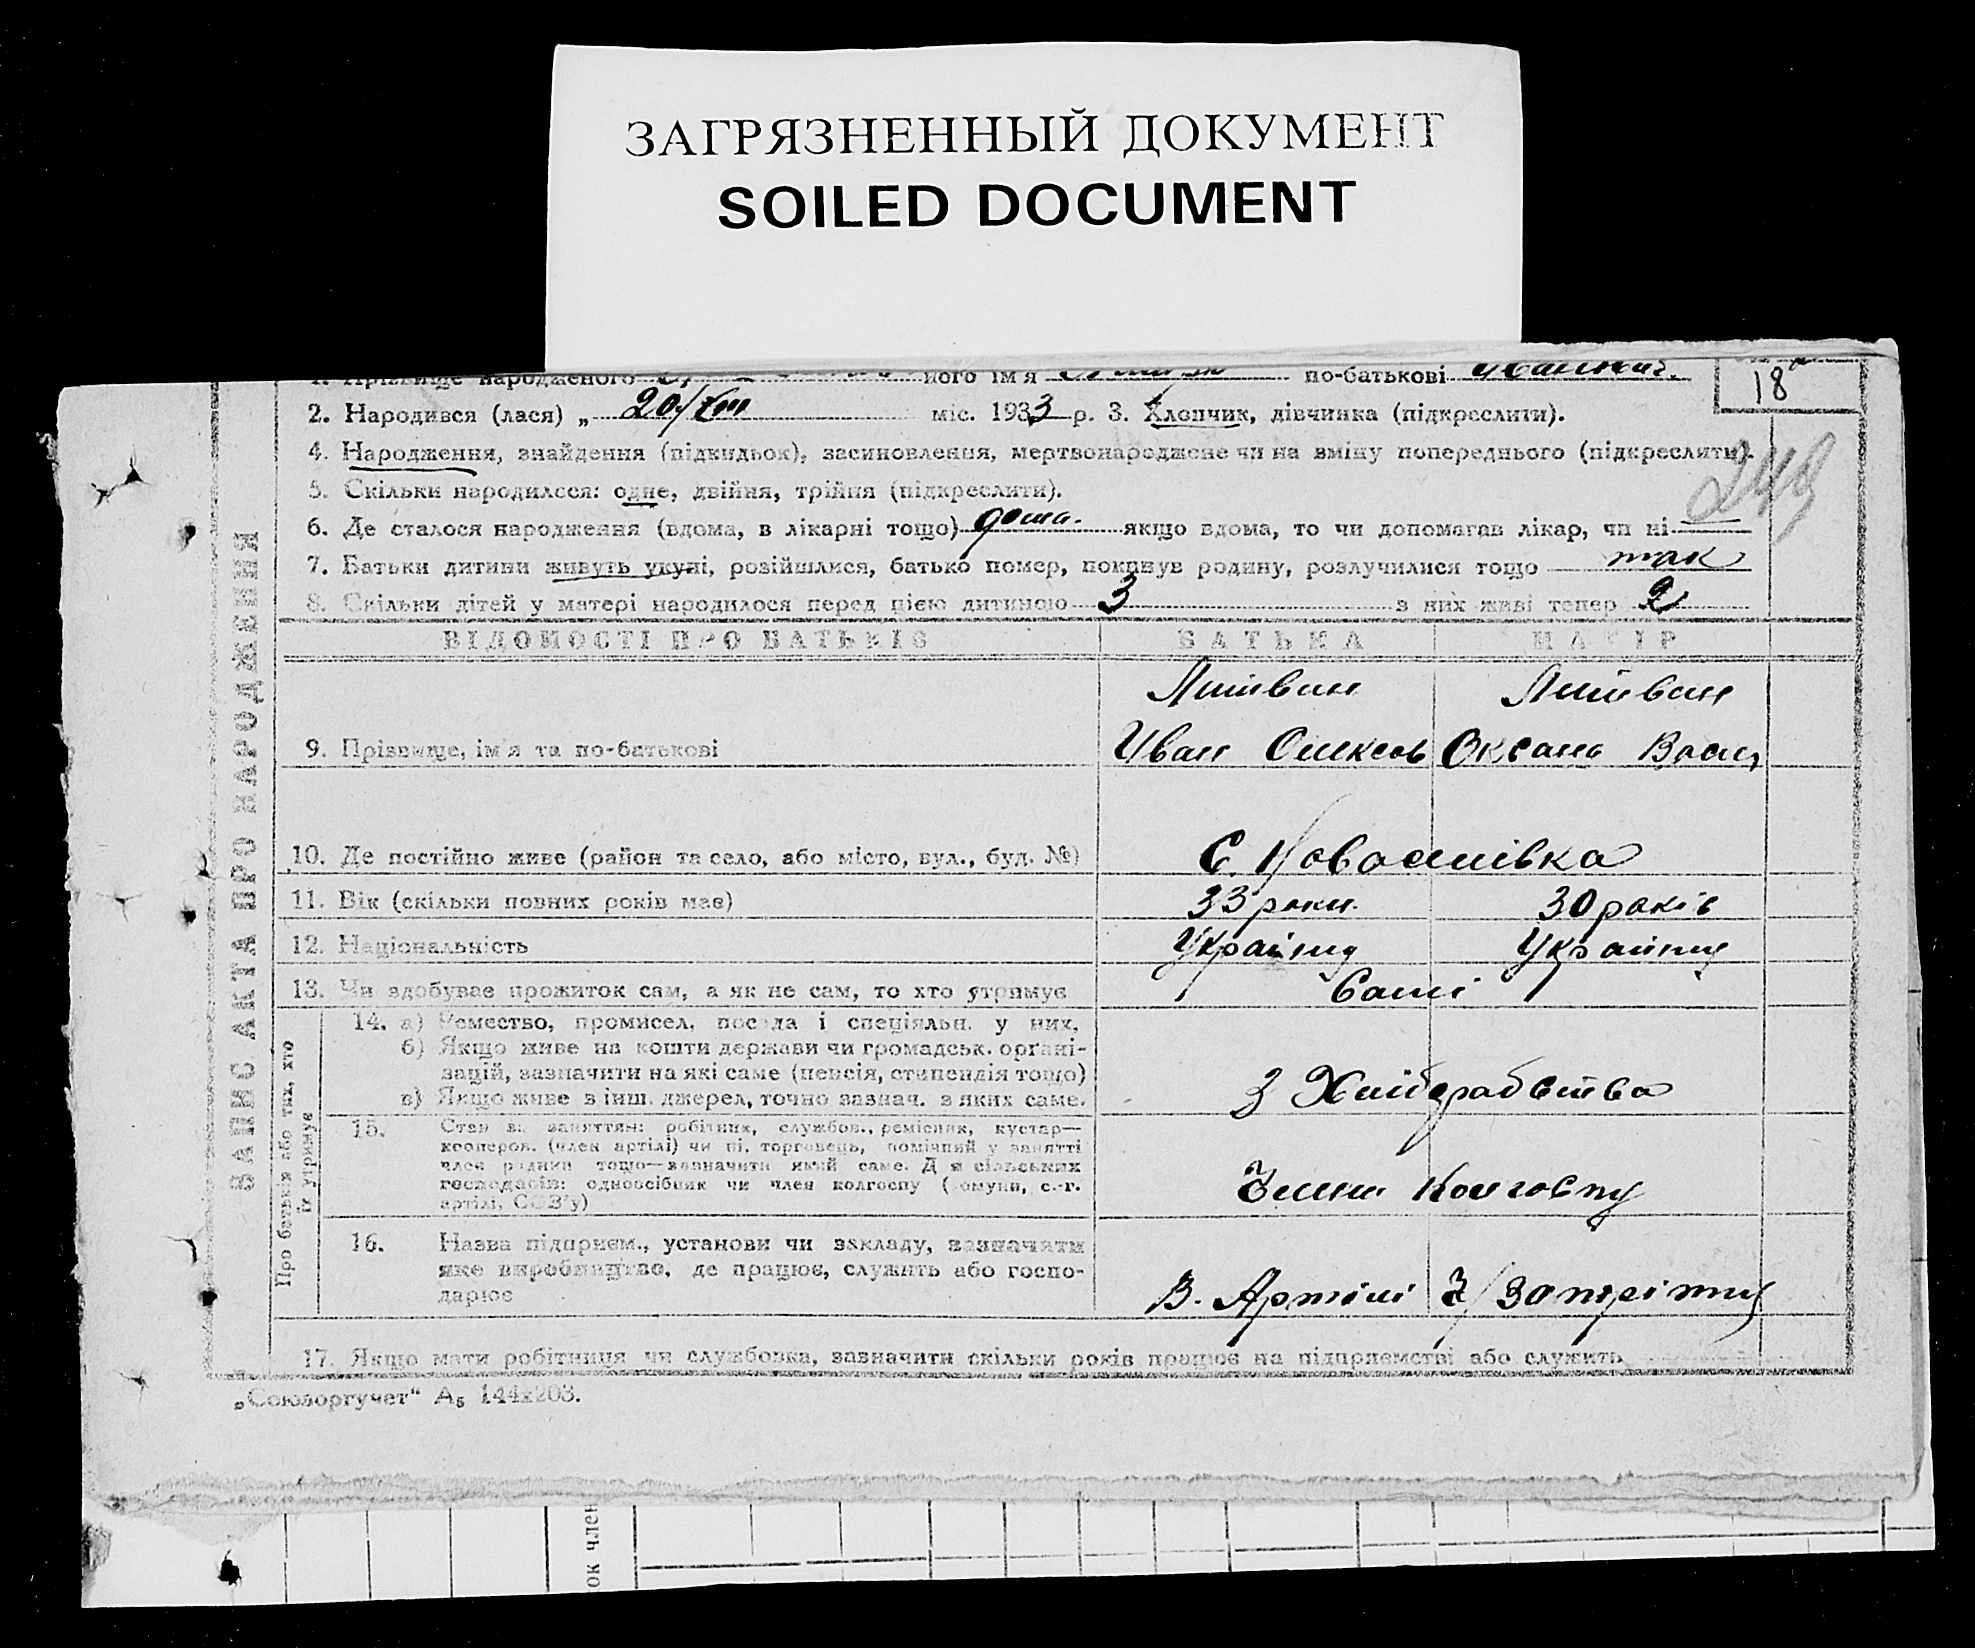 ЗАГРЯЗНЕННЫЙ ДОКУМЕНТ
SOILED DOCUMENT
1. Прізвище народженого його ім'я по-батькові
18
2. Народився (лася) „ 20/VIII міс. 1933 р. 3. Хлопчик, дівчинка (підкреслити).
4. Народження, знайдення (підкидьок), засиновлення, мертвонароджене чи на вміну попереднього (підкреслити).
5. Скільки народилося: одне, двійня, трійня (підкреслити).
6. Де сталося народження (вдома, в лікарні тощо) дома. якщо вдома, то чи допомагав лікар, чи ні —
7. Батьки дитини живуть укупі, розійшлися, батько помер, покинув родину, розлучилися тощо так
8. Скільки дітей у матері народилося перед цією дитиною 3 з них живі тепер 2
ЗАПИС АКТА ПРО НАРОДЖЕННЯ
ВІДОМОСТІ ПРО БАТЬКІВ БАТЬКА МАТІР
Литвин Литвин
9. Прізвище, ім'я та по-батькові Иван Оксана
10. Де постійно живе (район та село, або місто, вул., буд. №) С.
11. Вік (скільки повних років має) 33 роки. 30 років
12. Національність Україну Україну
13. Чи здобуває прожиток сам, а як не сам, то хто утримує Самі
Про батьків або тих, хто їх утримує
14. а) Ремество, промисел, посада і спеціяльн. у них,
б) Якщо живе на кошти держави чи громадськ. органі-
зацій, зазначити на які саме (пенсія, стипендія тощо)
в) Якщо живе з інш. джерел, точно зазнач. з яких саме.
З Хліборобства
15. Стан в. заняттям: робітник, службов., ремісник, кустар—
коопером. (член артілі) чи ні, торговець, помічний у занятті
член родини тощо—зазначити який саме. Для сільських
господарів: одноосібник чи член колгоспу (комуни, с.-г.
артілі, СОЗ'у)
Члени колгоспу
16. Назва підприєм., установи чи закладу, зазначити
яке виробництво, де працює, служить або госпо-
дарює
В. Артілі
17. Якщо мати робітниця чи службовка, зазначити скільки років працює на підприємстві або служить
„Союзоргучет“ А5 144х203.
ок член